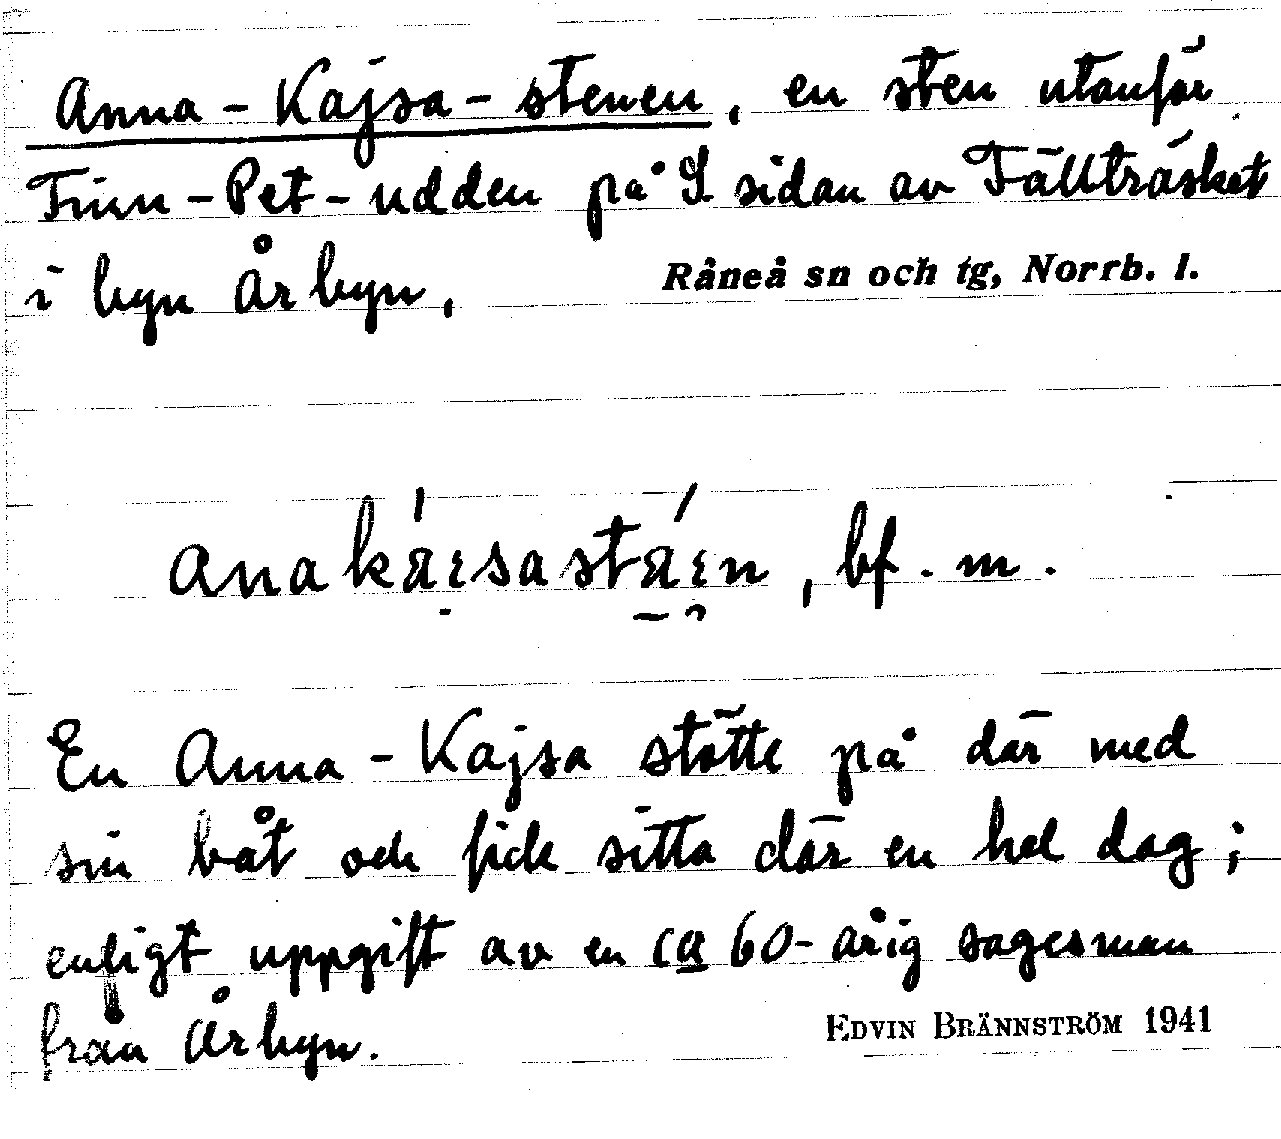 Anna-Kajsa-stenen, en sten utanför
Finn-Pet-udden på S sidan av Fällträsket
i byn Årbyn, Råneå sn och tg, Norrb. l.
anakáisastáin, bf. m.
En Anna-Kajsa stötte på där med
sin båt och fick sitta där en hel dag;
enligt uppgift av en ca 60-årig sagesman
från Årbyn. EDVIN BRÄNNSTRÖM 1941